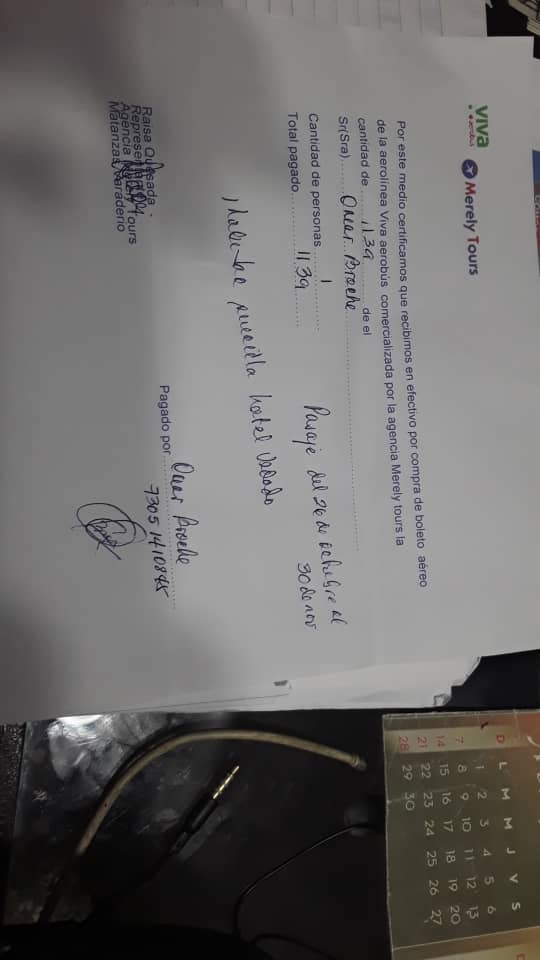 viva
aerobus
Merely Tours
Por este medio certificamos que recibimos en efectivo por compra de boleto aéreo
de la aerolínea Viva aerobús comercializada por la agencia Merely tours la
cantidad de ...1139... de el
Sr(Sra)... Omar Broche...
Cantidad de personas ...1...
Total pagado...1139...
Pasaje del 26 de octubre al
30 de nov
1 habi hac sencilla hotel Vedado
Pagado por... Omar Broche
73051410845
Raisa Quesada
Representante
Agencia Tours
Matanzas Varadero
D L M M J V S
1 2 3 4 5 6
7 8 9 10 11 12 13
14 15 16 17 18 19 20
21 22 23 24 25 26 27
28 29 30